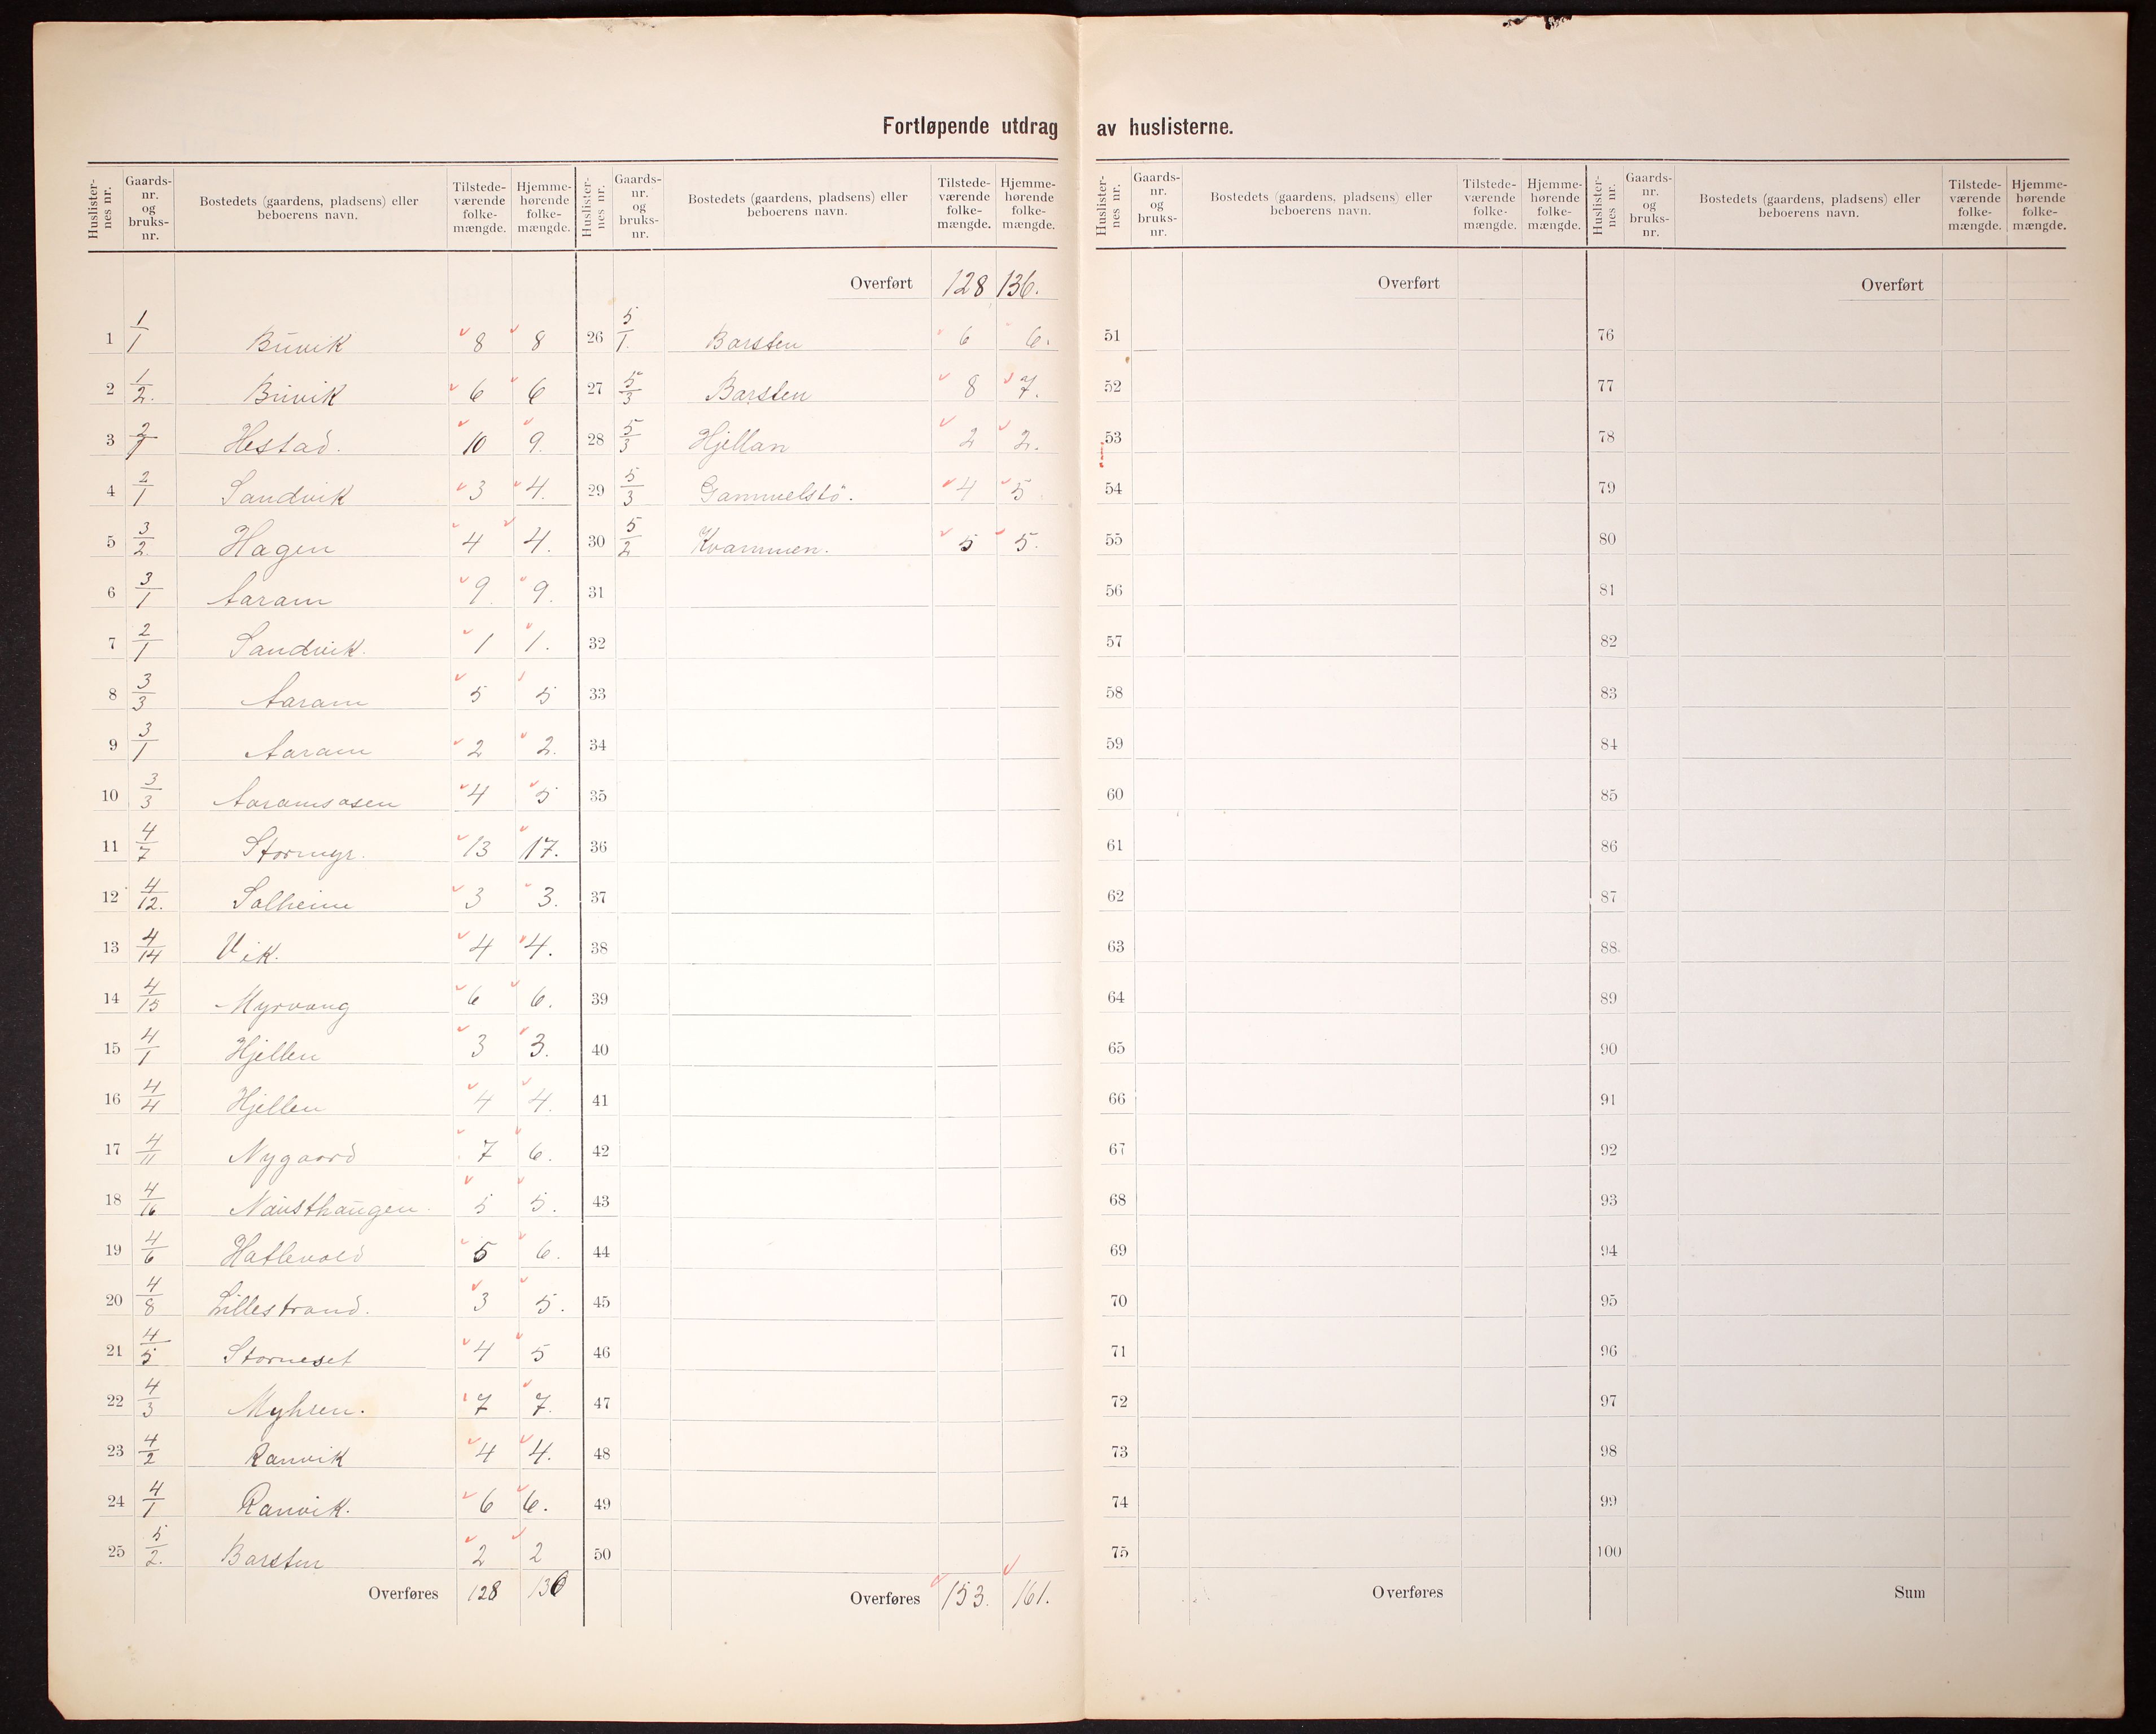 Fortløpende utdrag av huslisterne.
Huslister-nes nr. Gaards-nr. og bruks-nr. Bostedets (gaardens, pladsens) eller beboerens navn. Tilstede-værende folke-mængde. Hjemme-hørende folke-mængde.
1 1/1 Buvik 8 8
2 1/2. Buvik 6 6
3 2/1 Hestad. 10 9.
4 2/1 Sandvik 3 4.
5 3/2. Hagen 4 4.
6 3/1 Aaram 9. 9.
7 2/1 Sandvik. 1 1.
8 3/3 Aaram 5 5
9 3/1 Aaram 2 2.
10 3/3 Aaramsasen 4 5
11 4/7 Stormyr. 13 17.
12 4/12. Solheim 3 3.
13 4/14 Vik. 4 4.
14 4/15 Myrvang 6 6.
15 4/1 Hjellen 3 3.
16 4/4 Hjellen 4 4.
17 4/11 Nygaard 7 6.
18 4/16 Nausthaugen. 5 5.
19 4/6 Hatlevold 5 6.
20 4/8 Lillestrand. 3 5.
21 4/5 Storneset 4 5
22 4/3 Myhren. 7 7.
23 4/2 Ranvik 4 4.
24 4/1 Ranvik. 6 6.
25 5/2. Barsten 2 2
Overføres 128 136
Huslister-nes nr. Gaards-nr. og bruks-nr. Bostedets (gaardens, pladsens) eller beboerens navn. Tilstede-værende folke-mængde. Hjemme-hørende folke-mængde.
Overført 128 136.
26 5/1. Barsten 6 6.
27 5/3 Barsten 8 7.
28 5/3 Hjellan 2 2.
29 5/3 Gammelstö. 4 5
30 5/2 Kvammen. 5 5.
31
32
33
34
35
36
37
38
39
40
41
42
43
44
45
46
47
48
49
50
Overføres 153. 161.
Huslister-nes nr. Gaards-nr. og bruks-nr. Bostedets (gaardens, pladsens) eller beboerens navn. Tilstede-værende folke-mængde. Hjemme-hørende folke-mængde.
Overført
51
52
53
54
55
56
57
58
59
60
61
62
63
64
65
66
67
68
69
70
71
72
73
74
75
Overføres
Huslister-nes nr. Gaards-nr. og bruks-nr. Bostedets (gaardens, pladsens) eller beboerens navn. Tilstede-værende folke-mængde. Hjemme-hørende folke-mængde.
Overført
76
77
78
79
80
81
82
83
84
85
86
87
88
89
90
91
92
93
94
95
96
97
98
99
100
Sum